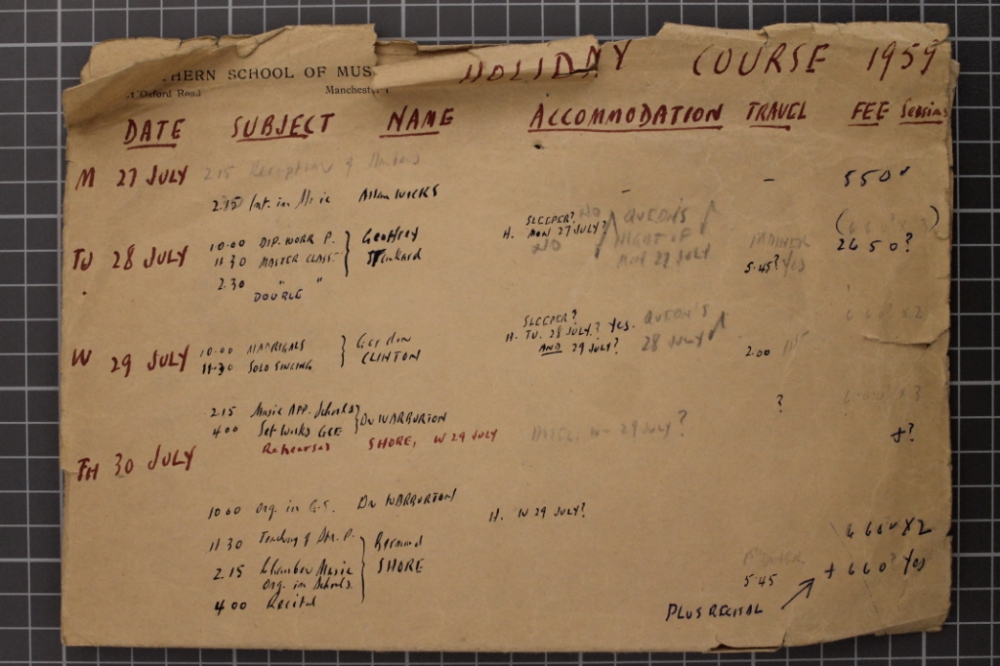 THERN SCHOOL OF MUS
Oxford Road Manchest
HOLIDAY COURSE 1959
DATE SUBJECT NAME ACCOMMODATION TRAVEL FEE Sessions
M 27 JULY 2.15 Reception of
2.15 Int. in Music Allan WICKS - - 550
TU 28 JULY 10.00 DIP. WORK P. Geoffrey H. SLEEPER? NO QUEEN'S
MON 27 JULY? NIGHT OF
11.30 MASTER CLASS NO MON 27 JULY 5.45? Yes 2650?
2.30 " "
DOUBLE
SLEEPER? QUEEN'S
W 29 JULY 10.00 MADRIGALS Gordon H. TU. 28 JULY? Yes. 28 JULY
11.30 SOLO SINGING CLINTON AND 29 JULY? 2.00
2.15 Music App. Schools Dr WARBURTON ?
4.00 Set Works GCE
Rehearsal SHORE, W 29 JULY HOTEL, W 29 JULY? +?
TH 30 JULY
10.00 Org. in G.S. Dr WARBURTON H. W 29 JULY?
11.30 Teaching of Str. P. Bernard 660 X2
2.15 Chamber Music SHORE 5.45 + 660? Yes
Org. in Schools
4.00 Recital
PLUS RECITAL